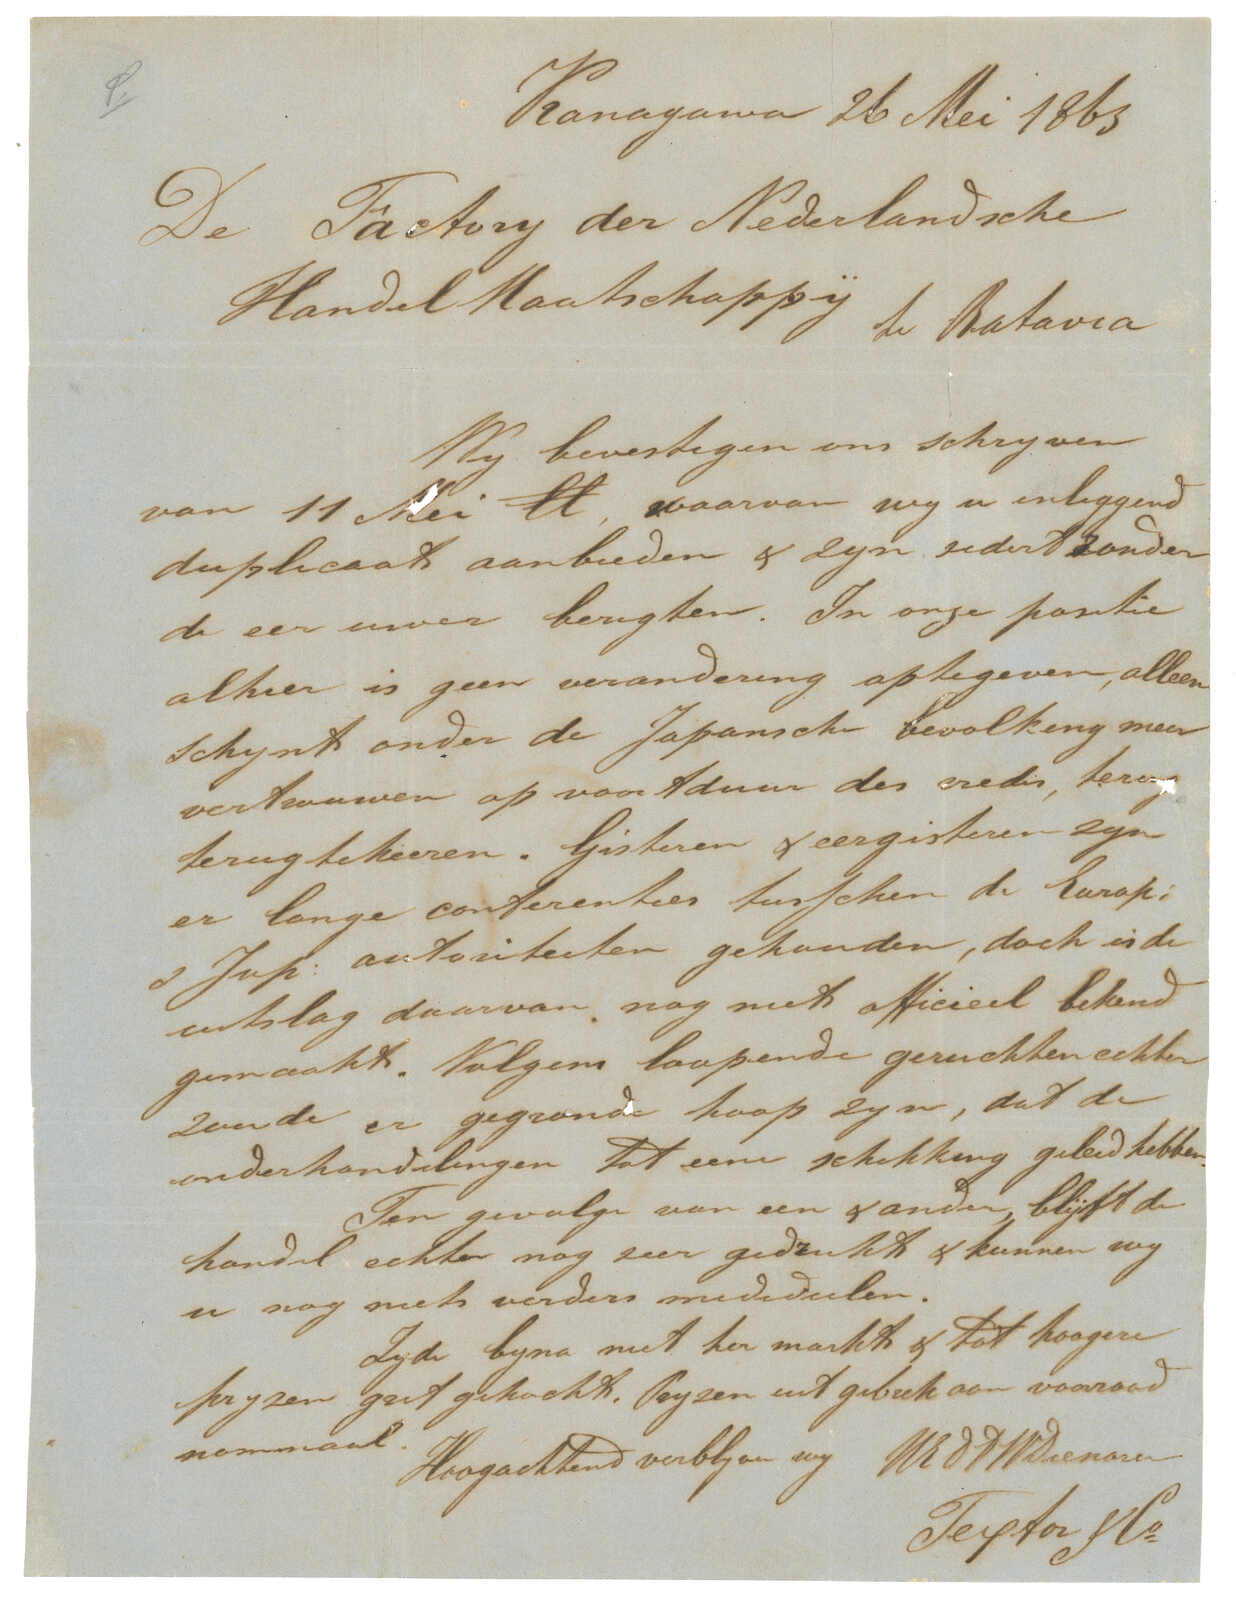 Kanagawa 26 Mei 1863
De Factory der Nederlandsche
Handel Maatschappÿ
te Batavia
Wy bevestigen ons schryven
van 11 Mei ll, waarvan wy u inliggend
duplicaat aanbieden & zyn sedert zonder
de eer uwer berigten. In onze positie
alhier is geen verandering optegeven, alleen
schynt onder de Japansche bevolking meer
vertrouwen op voortduur des vredes, terug
terugtekeeren. Gisteren & eergisteren zyn
er lange conferenties tusschen de Europ:
& Jap: autoriteiten gehouden, doch is de
uitslag daarvan nog niet officieel bekend
gemaakt. Volgens loopende geruchten echter
zoude er gegronde hoop zyn, dat de
onderhandelingen tot eene schikking geleid hebben.
Ten gevolge van een & ander, blijft de
handel echter nog zeer gedrukt & kunnen wy
u nog niets verders mededeelen.
Zyde byna niet ter markt & tot hoogere
pryzen gret gekocht. Pryzen uit gebrek aan voorraad
nominaal.
Hoogachtend verblyven wy UEDDWDienaren
Textor & Co